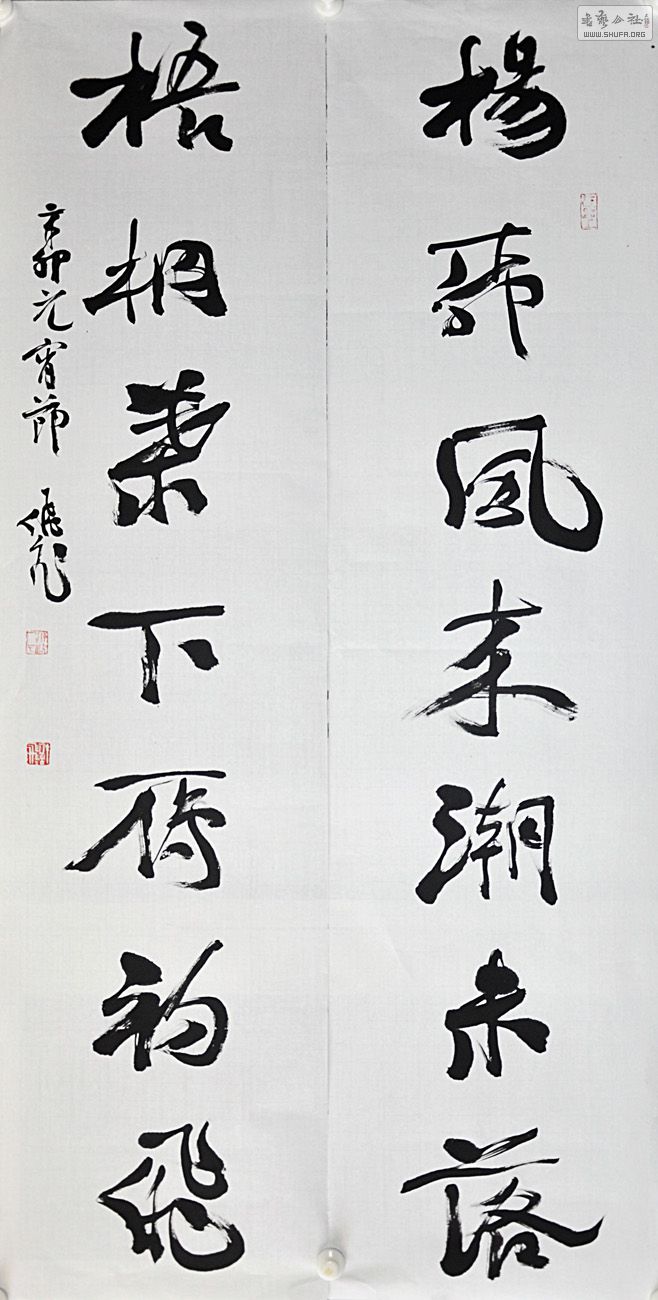 楊柳風来潮未落
梧桐葉下雁初飛
辛卯元宵節
書藝公社
WWW.SHUFA.ORG